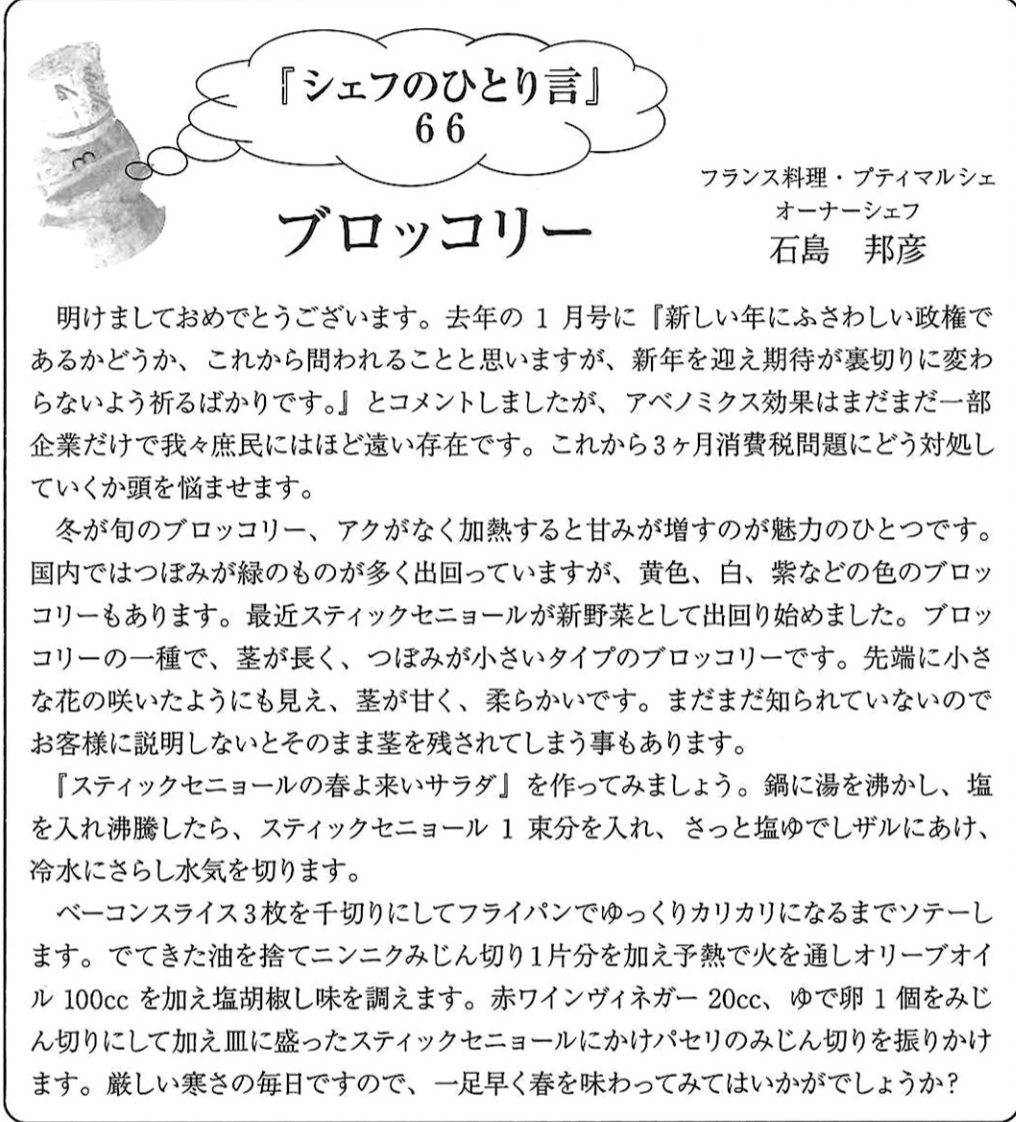 『シェフのひとり言』
66
フランス料理・プティマルシェ
オーナーシェフ
石島　邦彦
ブロッコリー
　明けましておめでとうございます。去年の 1 月号に『新しい年にふさわしい政権で
あるかどうか、これから問われることと思いますが、新年を迎え期待が裏切りに変わ
らないよう祈るばかりです。』とコメントしましたが、アベノミクス効果はまだまだ一部
企業だけで我々庶民にはほど遠い存在です。これから3ヶ月消費税問題にどう対処し
ていくか頭を悩ませます。
　冬が旬のブロッコリー、アクがなく加熱すると甘みが増すのが魅力のひとつです。
国内ではつぼみが緑のものが多く出回っていますが、黄色、白、紫などの色のブロッ
コリーもあります。最近スティックセニョールが新野菜として出回り始めました。ブロッ
コリーの一種で、茎が長く、つぼみが小さいタイプのブロッコリーです。先端に小さ
な花の咲いたようにも見え、茎が甘く、柔らかいです。まだまだ知られていないので
お客様に説明しないとそのまま茎を残されてしまう事もあります。
　『スティックセニョールの春よ来いサラダ』を作ってみましょう。鍋に湯を沸かし、塩
を入れ沸騰したら、スティックセニョール 1 束分を入れ、さっと塩ゆでしザルにあけ、
冷水にさらし水気を切ります。
　ベーコンスライス3枚を千切りにしてフライパンでゆっくりカリカリになるまでソテーし
ます。でてきた油を捨てニンニクみじん切り1片分を加え予熱で火を通しオリーブオイ
ル 100cc を加え塩胡椒し味を調えます。赤ワインヴィネガー 20cc、ゆで卵 1 個をみじ
ん切りにして加え皿に盛ったスティックセニョールにかけパセリのみじん切りを振りかけ
ます。厳しい寒さの毎日ですので、一足早く春を味わってみてはいかがでしょうか?